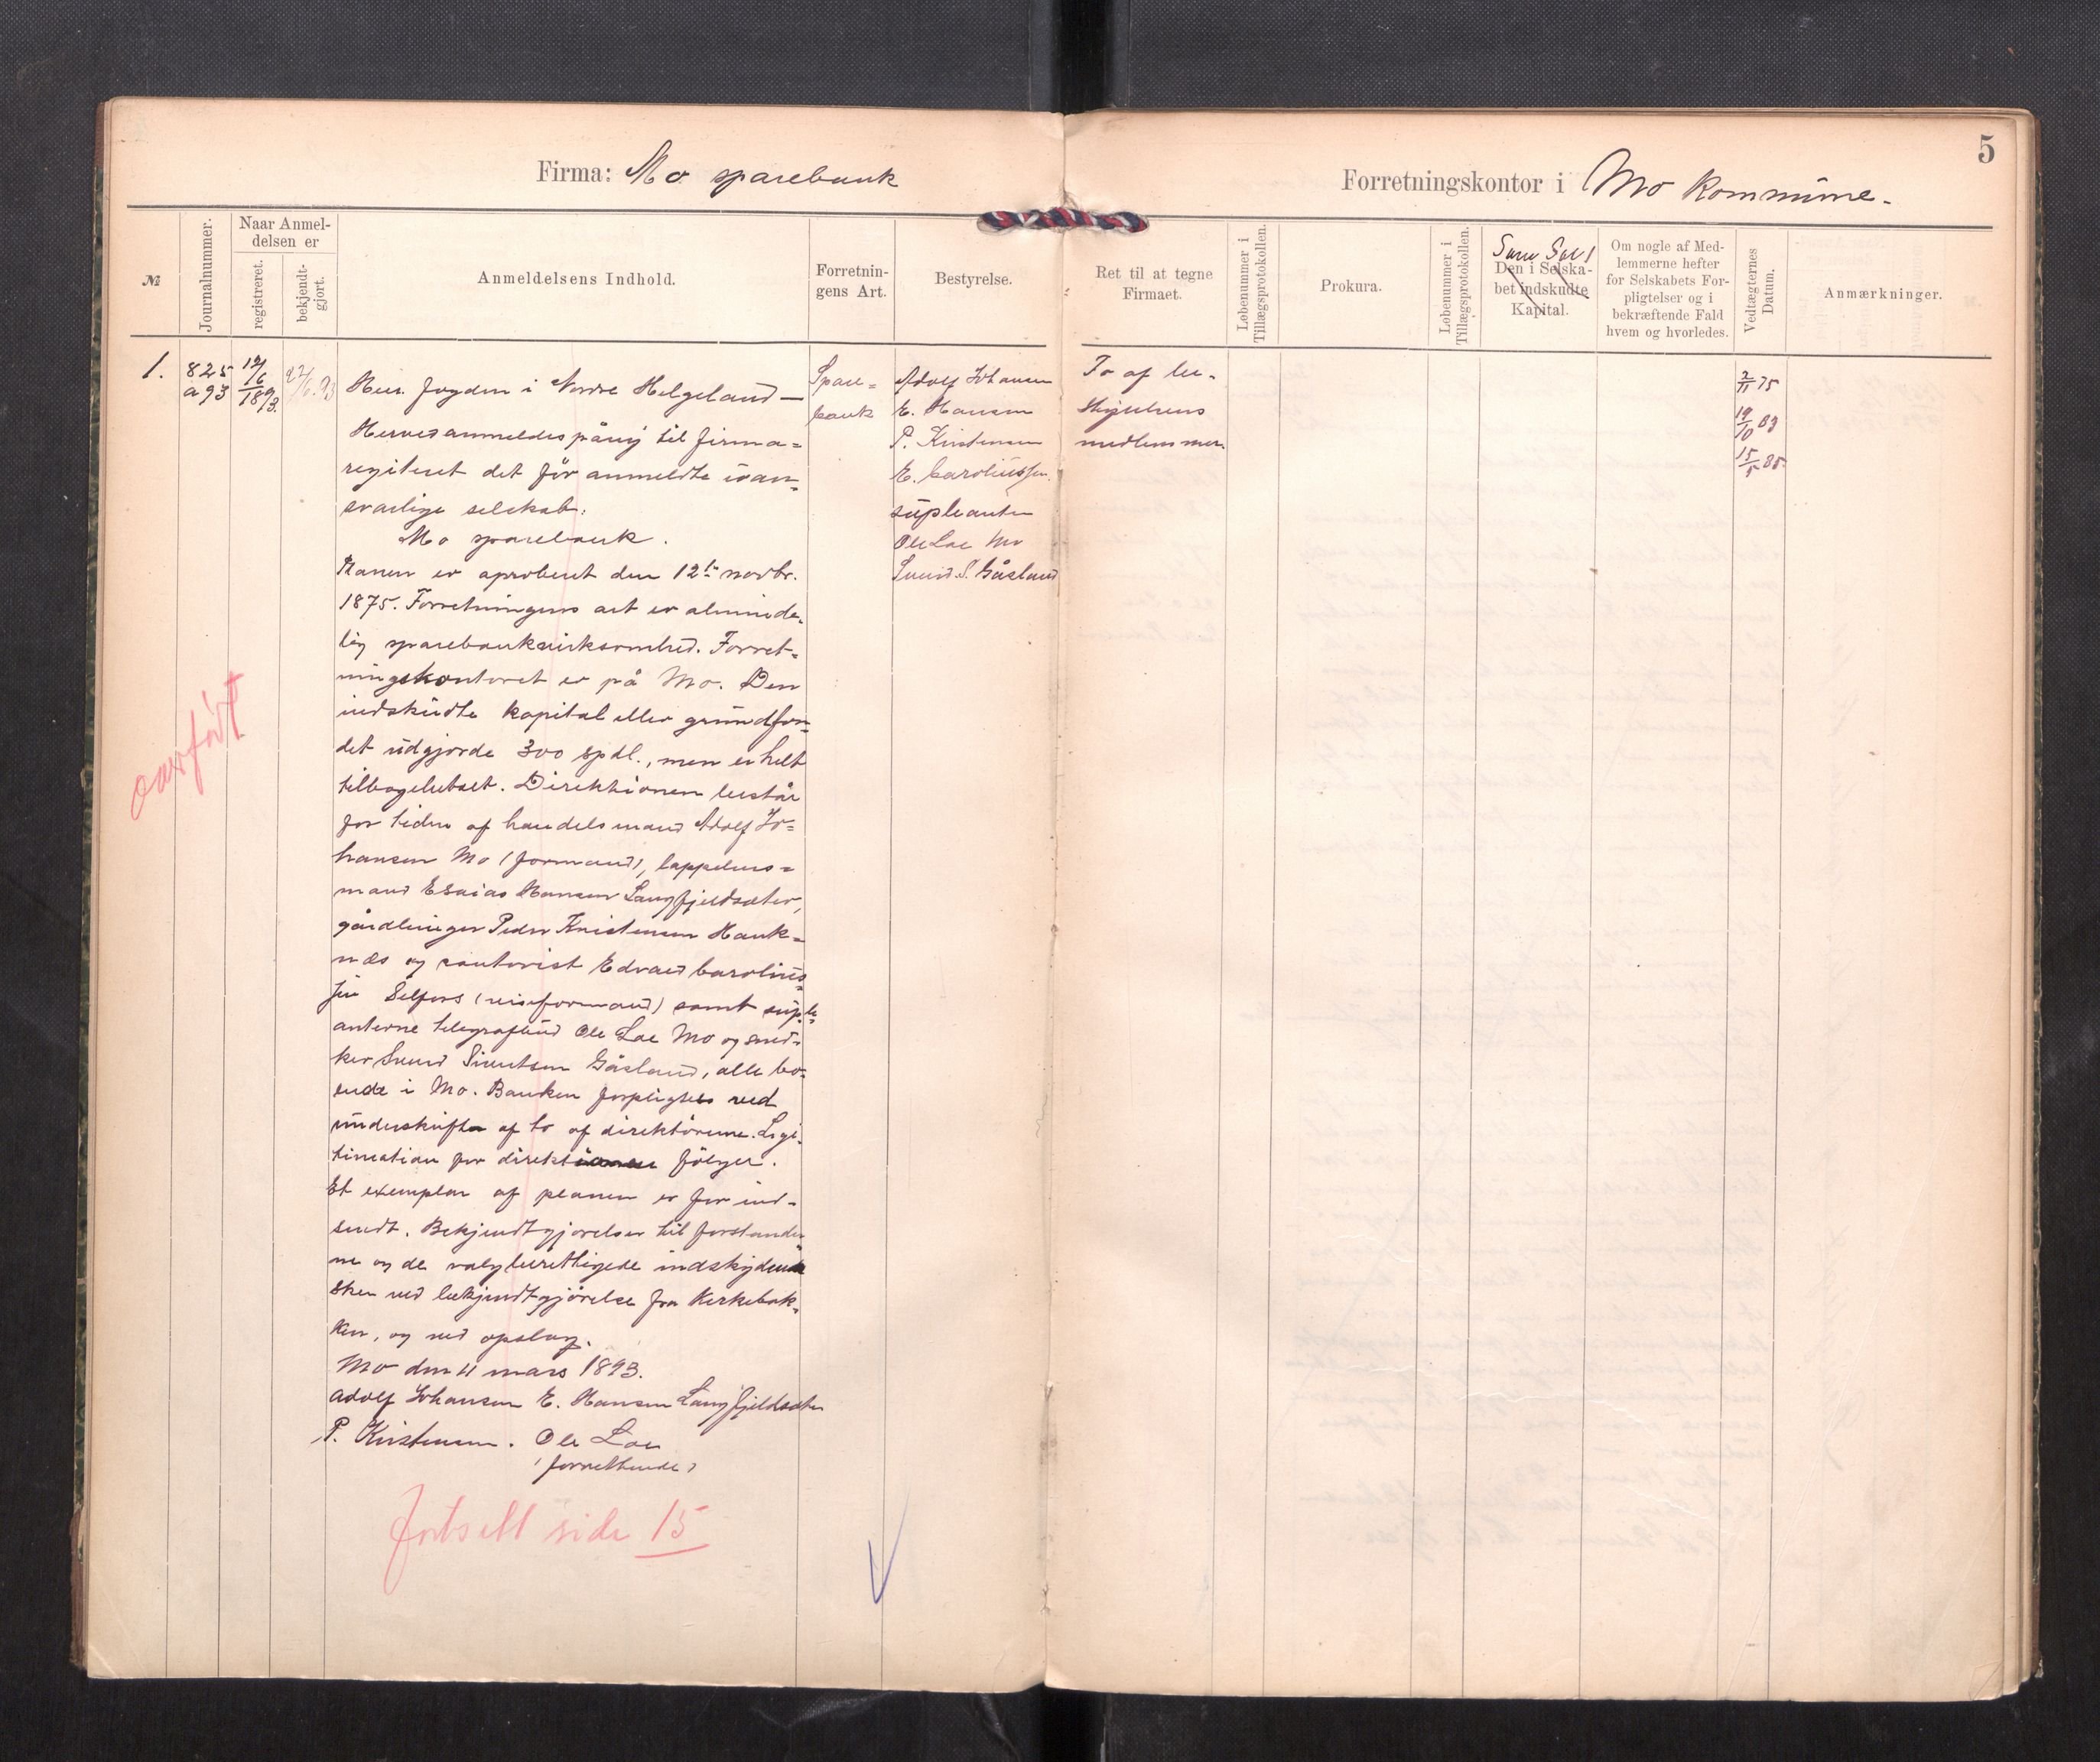 5
Firma: Mo sparebank
Forretningskontor i Mo kommune.
№
Journalnummer.
Naar Anmel-
delsen er
registreret.
bekjendt-
gjort.
Anmeldelsens Indhold.
Forretnin-
gens Art.
Bestyrelse.
Ret til at tegne
Firmaet.
Løbenummer i
Tillægsprotokollen.
Prokura.
Løbenummer i
Tillægsprotokollen.
Den i Selska-
bet indskudte
Kapital.
Om nogle af Med-
lemmerne hefter
for Selskabets For-
pligtelser og i
bekræftende Fald
hvem og hvorledes.
Vedtægternes
Datum.
Anmærkninger.
1.
825
a 93
12/6
1893.
Herr. fogden i Nordre Helgeland —
Herved anmeldes påny til firma=
registeret det før anmeldte uan=
svarlige selskab:
Mo sparebank.
Planen er aproberet den 12te novbr.
1875. Forretningens art er alminde-
lig sparebankvirksomhed. Forret=
ningskontoret er på Mo. Den
indskudte kapital eller grundfon=
det udgjorde 300 spdl., men er helt
tilbagebetalt. Direktionen består
for tiden af handelsmand Adolf Jo=
hansen Mo (formand), lappelens=
mand Esaias Hansen Langfjeldsæter,
gårdbruger Peder Kristensen Hauk=
næs og kontorist Edvard Carolius=
sen Selfors (viseformand) samt suple=
anterne telegrafbud Ole Loe Mo og sned=
ker Svend Sivertsen Gåsland, alle bo-
ende i Mo. Banken forpligtes ved
underskrift af to af direktørerne. Legi-
timation for direktionen følger.
Et exemplar af planen er før ind-
sendt. Bekjendtgjørelser til forstander
ne og de valgberettigede indskydende
sker ved bekjendtgjørelse fra Kirkebak=
ken, og ved opslag.
Mo den 11 mars 1893.
Adolf Johansen E. Hansen Langfjeldsæter
P. Kristensen. Ole Loe
(forrettende)
Spare=
bank
Adolf Johansen
E. Hansen
P. Kristensen
E. Caroliussen
supleanter
Ole Loe Mo
Svend S. Gåsland
To af be-
styrelsens
medlemmer.
2/11 75
19/10 83
15/5 85.
overført
fortsatt side 15